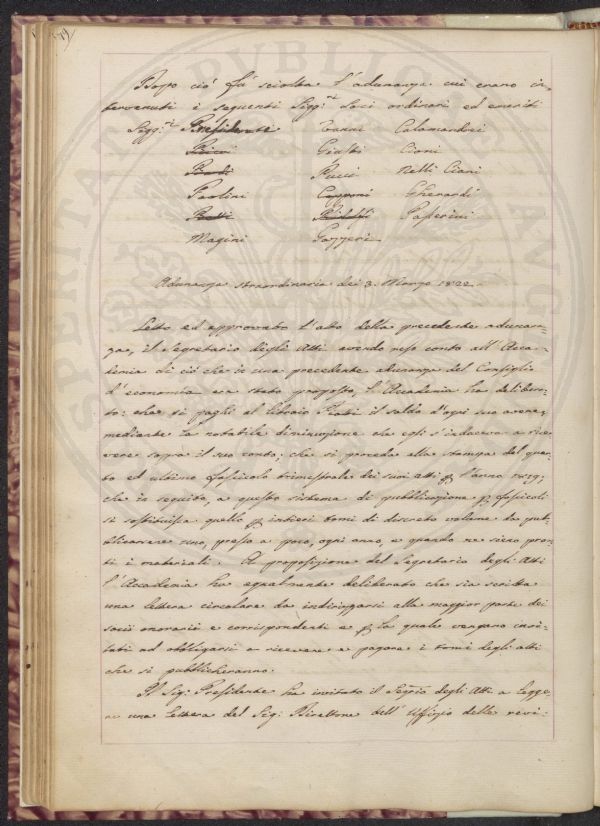 Dopo ciò fù sciolta l'adunanza cui erano in-
tervenuti i seguenti Sigg.ri Soci ordinari ed emeriti
Sigg.ri Presidente Tanni Calamandrei
Ricci Giusti Cioni
Bardi Pucci Nelli Ciani
Paolini Capponi Gherardi
Betti Ridolfi Gasperini
Magini Gazzeri
Adunanza straordinaria dei 3. Marzo 1822.
Letto ed approvato l'atto della precedente adunan-
za, il Segretario degli Atti avendo reso conto all'Acca-
demia di ciò che in una precedente adunanza del Consiglio
d'economia era stato proposto, l'Accademia ha delibera-
to: che si paghi al libraio Piatti il saldo d'ogni suo avere,
mediante la notabile diminuzione che egli s'induceva a rice-
vere sopra il suo conto; che si proceda alla stampa del quar-
to ed ultimo fascicolo trimestrale dei suoi atti p l'anno 1819;
che in seguito, a questo sistema di pubblicazione p fascicoli
si sostituisca quello p intieri tomi di discreto volume da pub-
blicarsene uno, presso a poco, ogni anno, e quando ne siano pron-
ti i materiali. A proposizione del Segretario degli Atti
l'Accademia ha egualmente deliberato che sia scritta
una lettera circolare da indirizzarsi alla maggior parte dei
socii onorarii e corrispondenti e p la quale vengano invi-
tati ad obbligarsi a ricevere e pagare i tomi degli atti
che si pubblicheranno.
Il Sig: Presidente ha invitato il Segrio degli Atti a legge-
re una lettera del Sig: Direttore dell'Uffizio delle revi-